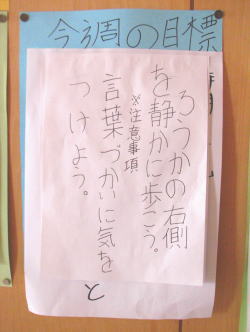 今週の目標
ろうかの右側
を静かに歩こう。
※注意事項
言葉づかいに気を
つけよう。
と